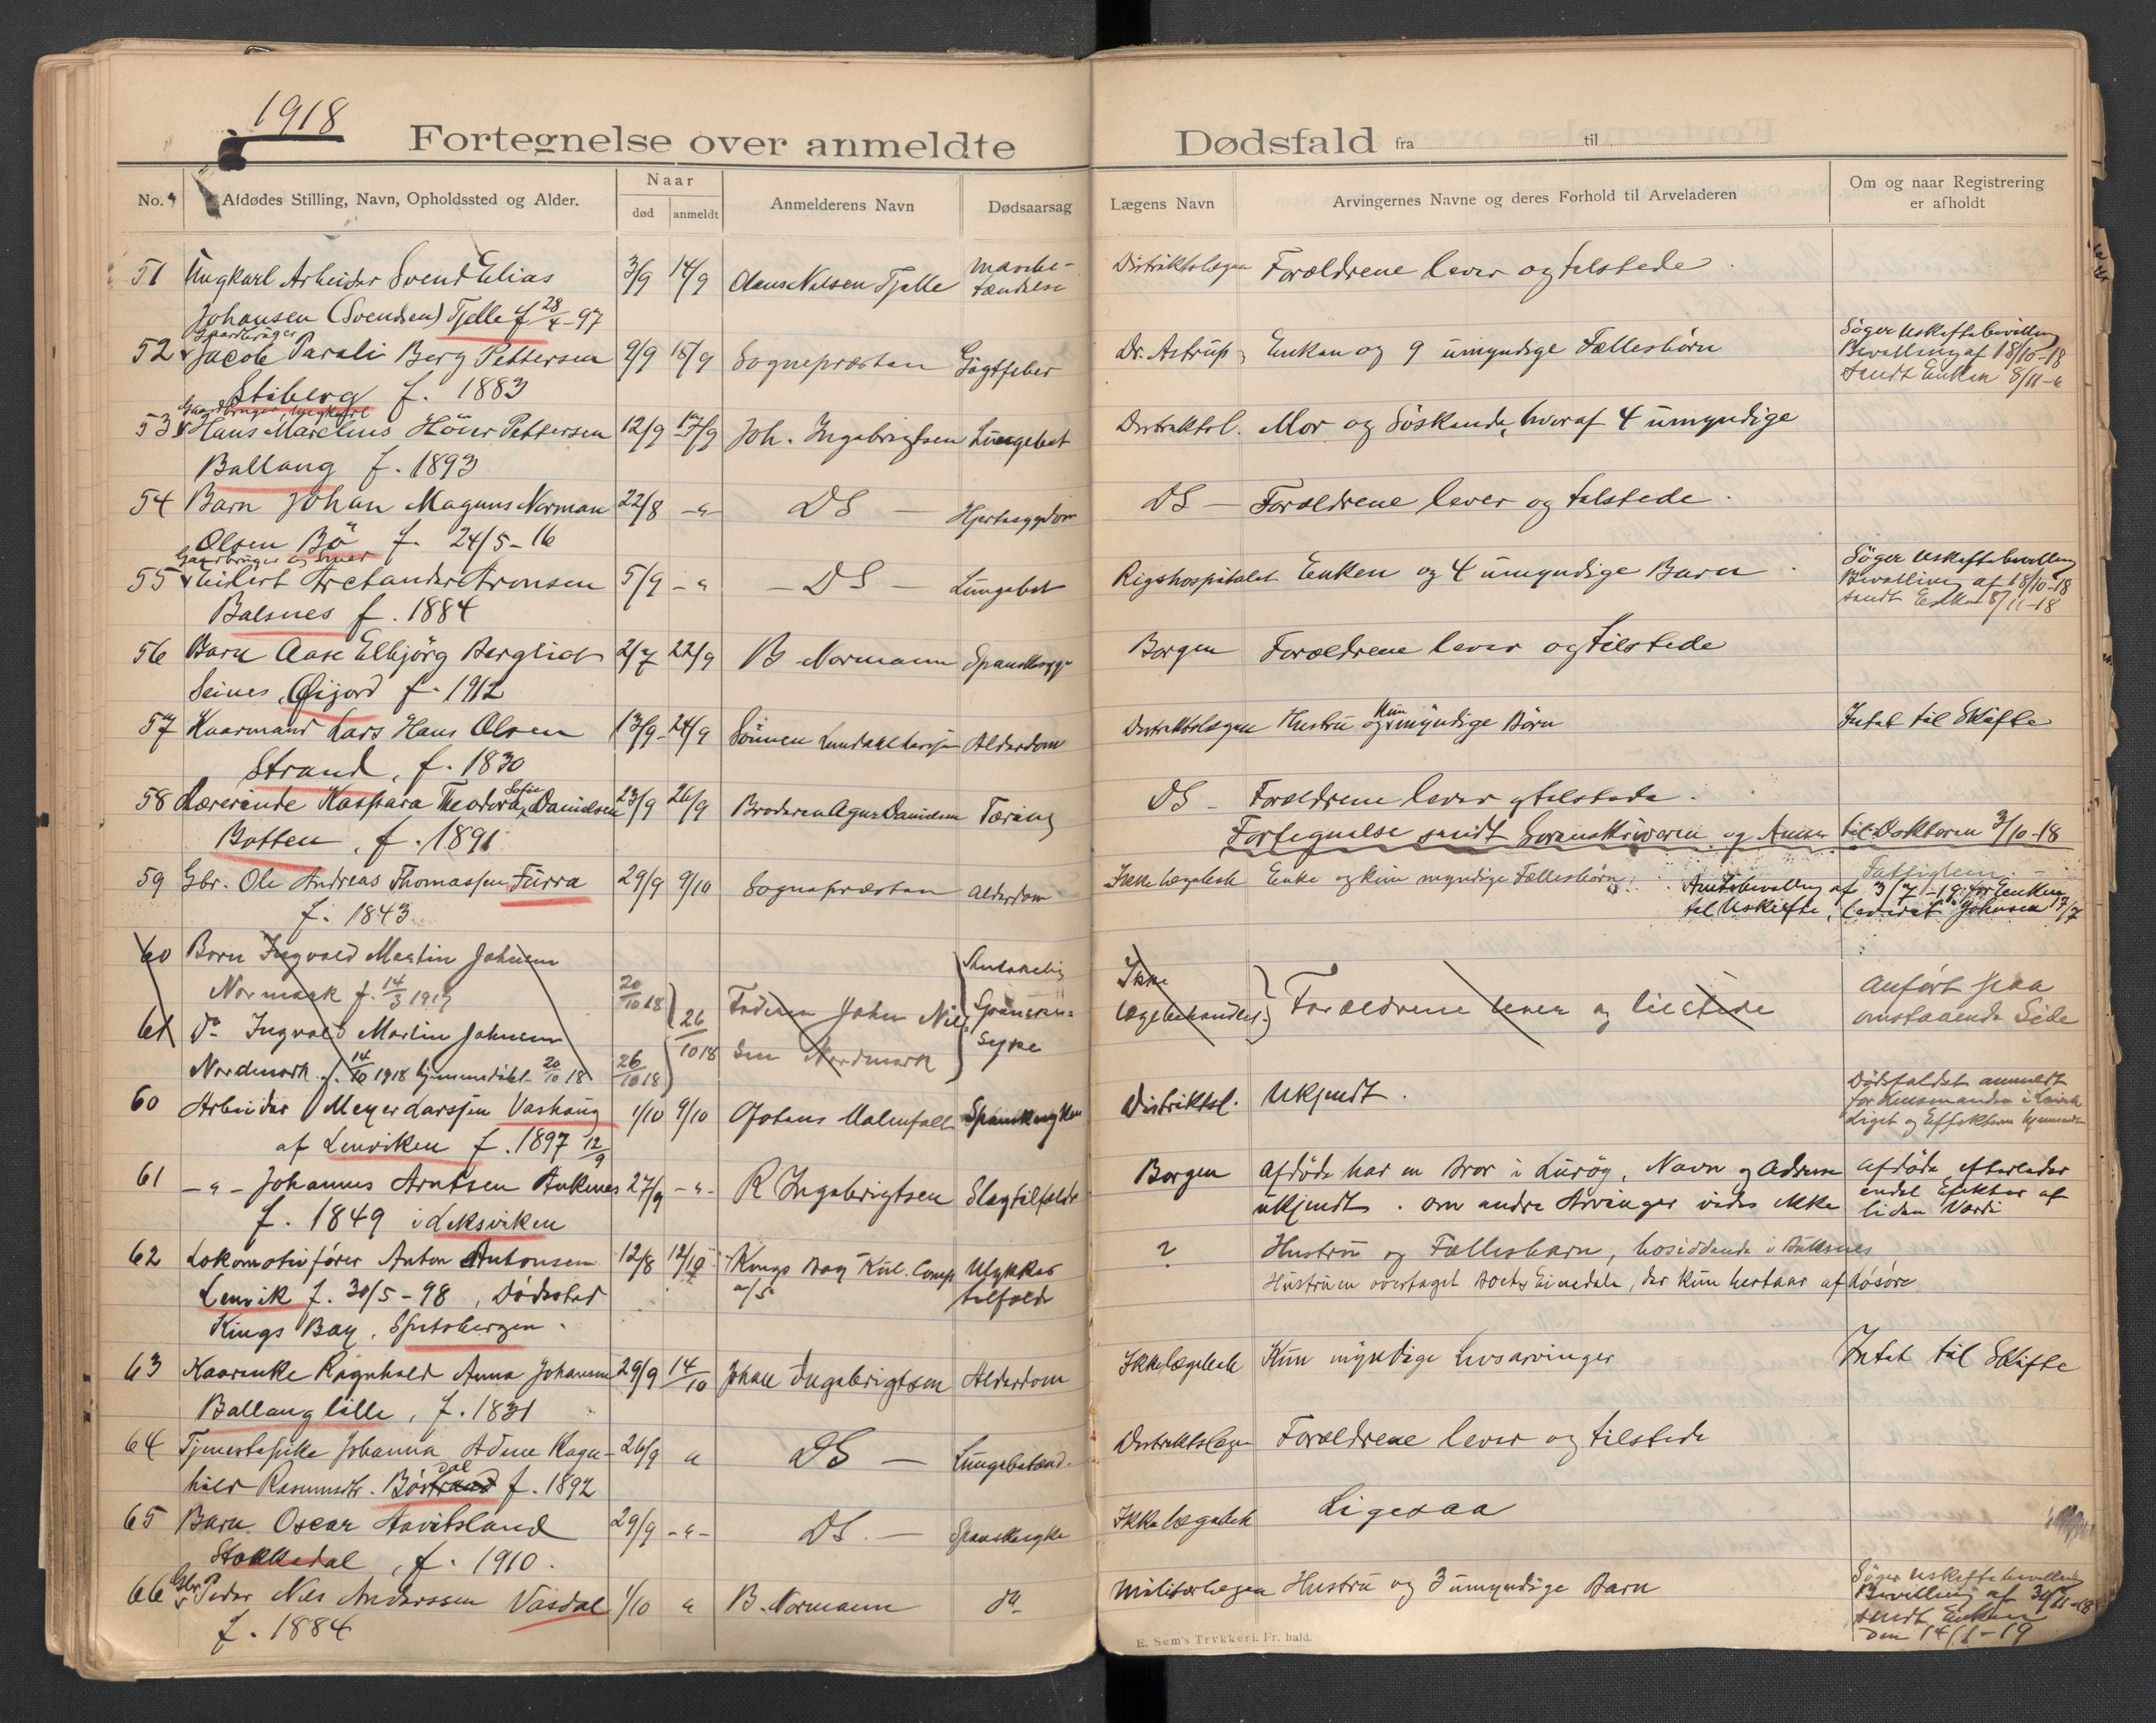 1918
Fortegnelse over anmeldte Dødsfald fra til
No.
Afdødes Stilling, Navn, Opholdssted og Alder.
Naar
død
anmeldt
Anmelderens Navn
Dødsaarsag
Lægens Navn
Arvingernes Navne og deres Forhold til Arveladeren
Om og naar Registrering
er afholdt
51 Ungkarl Arbeider Svend Elias 3/9 14/9 Nilsen Tjelle Distriktslægen Forældrene lever og tilstede
Johansen (Svendsen) Tjelle f 28/4-97
Gaardbruger
52 Jacob Parali Berg Pettersen 9/9 15/9 Sognepræsten Gigtfeber Dr. Astrup Enken og 9 umyndige Fællesbørn Søger Uskiftebevilling
Bevilling af 18/10-18
sendt Enken 8/11
Stiberg f. 1883
Gaardbruger, ungkarl
53 Hans Marelius Höier Pettersen 12/9 17/9 Joh. Ingebrigtsen Lungebet Distriktsl. Mor og Söskende, hvoraf 4 umyndige
Ballang f. 1893
54 Barn Johan Magnus Norman 22/8 -"- DS - Hjertesygdom DS - Forældrene lever og tilstede.
Olsen Bö f. 24/5-16
Gaardbruger og
55 Eilert Aronsen 5/9 -" - DS - Lungebet Rigshospitalet Enken og 4 umyndige Barn Søger Uskiftebevilling
Bevilling af 18/10-18
sendt Enken 8/11-18
Balsnes f. 1884
56 Barn Aase Elbjörg Bergliot 2/7 22/9 B Normann Spansksyge Borgen Forældrene lever og tilstede
Seines, Öijord f. 1912
57 Kaarmand Lars Hans Olsen 13/9 24/9 Sönnen Alderdom Distriktslægen Hustru og kun myndige Börn Intet til Skifte
Strand, f. 1830
58 Lærerinde Kaspara Theodora Sofie Danielsen 23/9 26/9 Broderen Danielsen Tæring DS - Forældrene lever og tilstede.
Botten, f. 1891
Fortegnelse sendt Sorenskriveren og til Doktoren 3/10-18
59 Gbr. Ole Andreas Thomassen Furra 29/9 9/10 Sognepræsten Alderdom Ikke lægebeh Enke og kun myndige Fællesbörn.
f. 1843
Amtsbevilling af 3/7-19 for Enken
til Uskifte, Johnsen 17/7
60 Barn Ingvald Martin Johnsen
Normark f. 14/3 1917 20/10 18
61 do Ingvald Martin Johnsen
Nordmark f. 14/10 1918 hjemmedöbt 20/10 18 26/10 18
26/10 18 Faderen John Nilsen Nordmark
Spanske Syke
Ikke
lægebehandlet Forældrene lever og tilstede Anført paa
omstaaende Side
60 Arbeider Meyer Larssen Vashaug 1/10 9/10 Johans Malmfall Spansksyken Distriktsl. Ukjendt. Dödsfaldet anmeldt
for Lensmanden i
Liget og Effekterne
af Lenviken f. 1897 12/9
61 -"- Johannes Arntsen Ankenes 27/9 -"- R Ingebrigtsen Slagtilfælde Borgen Afdöde har en Bror i Luröy, Navn og Adresse
ukjendt. Om andre Arvinger vides ikke
Afdöde efterlader
endel Efekter af
liden Værdi
f. 1849 i Leksviken
62 Lokomotivförer Anton Antonsen 12/8 12/10 Kings Bay Kul. Comp
a/s Ulykkes
tilfælde ? Hustru og Fællesbarn, bosiddende i Buksnes
Hustruen overtaget Boets Eiendele, der kun bestaar af Lösöre
Lenvik f. 30/5-98, Dödssted
Kings Bay, Spitsbergen.
63 Kaarenke Ragnhild Anna Johansen 29/9 14/10 Johan Ingebrigtsen Alderdom Ikke lægebeh Kun myndige Livsarvinger Intet til Skifte
Ballang lille, f. 1831
64 Tjenestepike Johanna Adine Ragn- 26/9 " DS - Lungebetænd. Distriktslægen Forældrene lever og tilstede
hild Rasmusdtr. Böstrand dal f. 1892
65 Barn Oscar Havitsland 29/9 -"- DS. - Spansksyke Ikke lægebeh Ligesaa
Stokkedal, f. 1910.
66 Gbr. Peder Nils Anderssen Vasdal 1/10 " B. Normann do Militærlægen Hustru og 3 umyndige Barn Søger Uskiftebevilling
Bevilling af 30/11-18
sendt Enken
den 14/1-19
f. 1884
E. Sem's Trykkeri, Fr.hald.